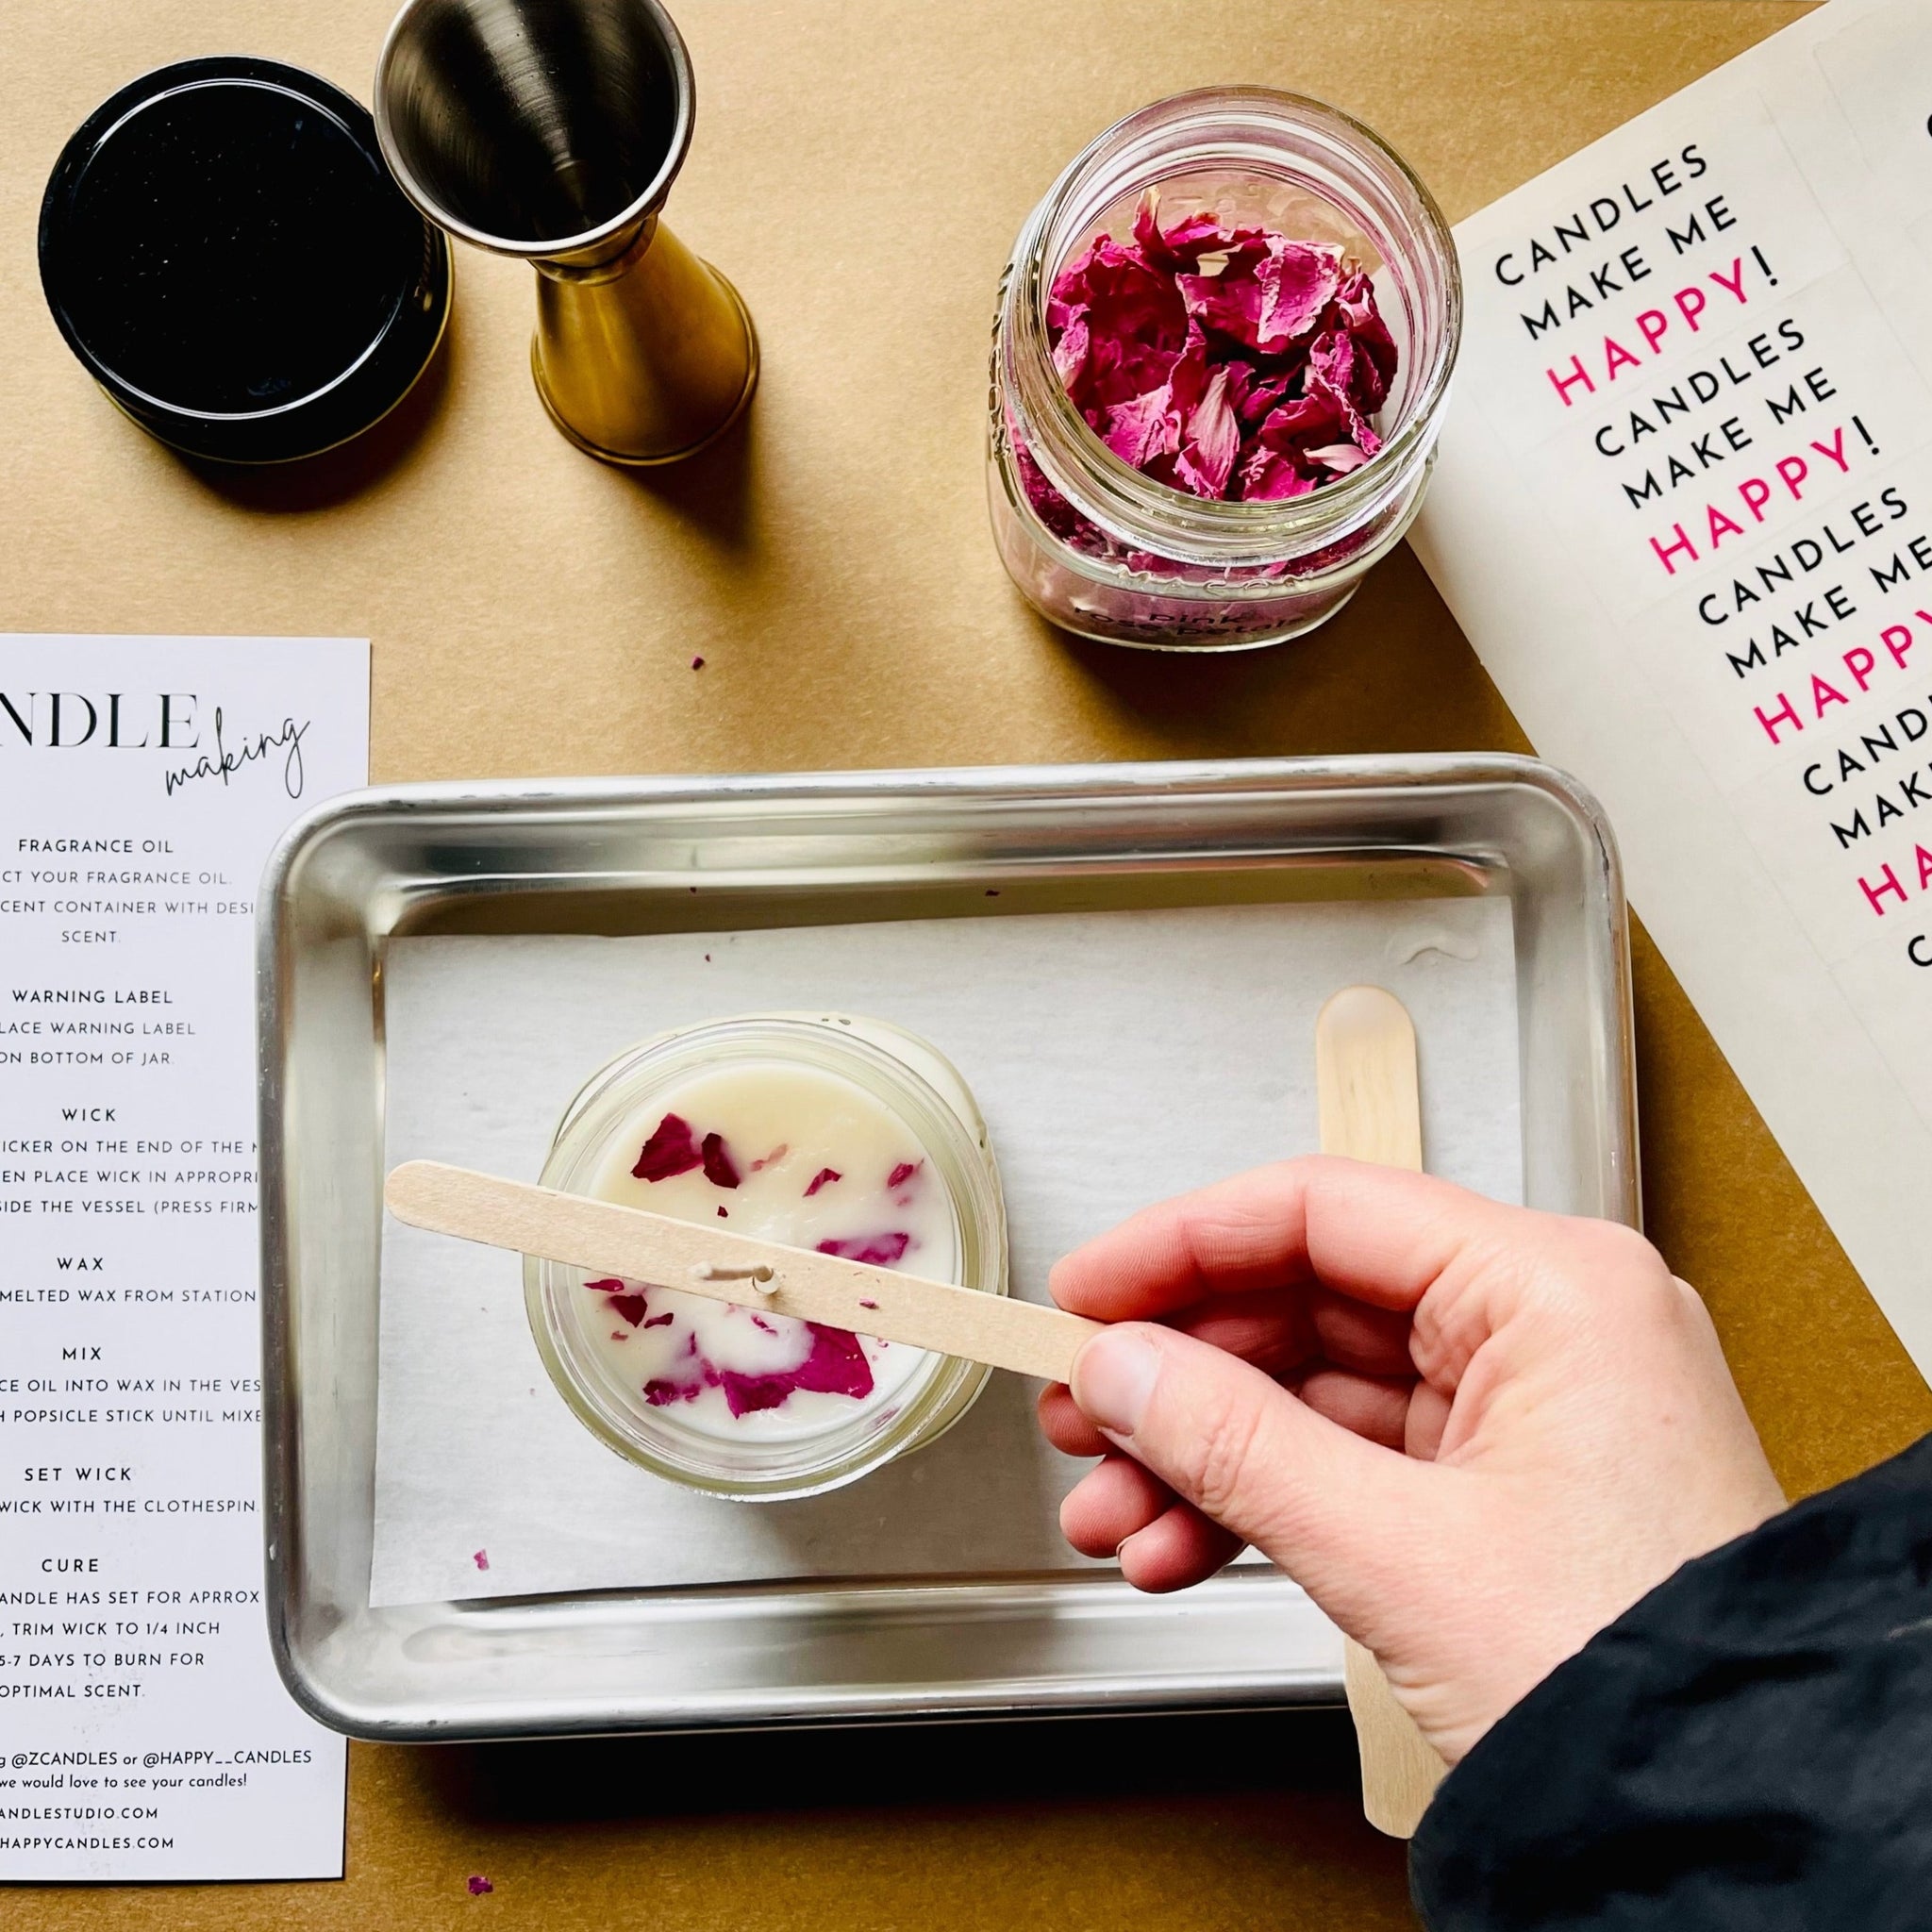 NDLE
making
FRAGRANCE OIL
CT YOUR FRAGRANCE OIL.
CENT CONTAINER WITH DESI
SCENT.
WARNING LABEL
LACE WARNING LABEL
ON BOTTOM OF JAR.
WICK
ICKER ON THE END OF THE
EN PLACE WICK IN APPROPRI
SIDE THE VESSEL (PRESS FIRM
WAX
MELTED WAX FROM STATION
MIX
CE OIL INTO WAX IN THE VES
H POPSICLE STICK UNTIL MIXE
SET WICK
WICK WITH THE CLOTHESPIN.
CURE
ANDLE HAS SET FOR APRROX
, TRIM WICK TO 1/4 INCH
5-7 DAYS TO BURN FOR
OPTIMAL SCENT.
g @ZCANDLES or @HAPPY__CANDLES
we would love to see your candles!
ANDLESTUDIO.COM
HAPPYCANDLES.COM
pink
rose petals
CANDLES
MAKE ME
HAPPY!
CANDLES
MAKE ME
HAPPY!
CANDLES
MAKE ME
HAPPY
CAND
MAK
HA
C